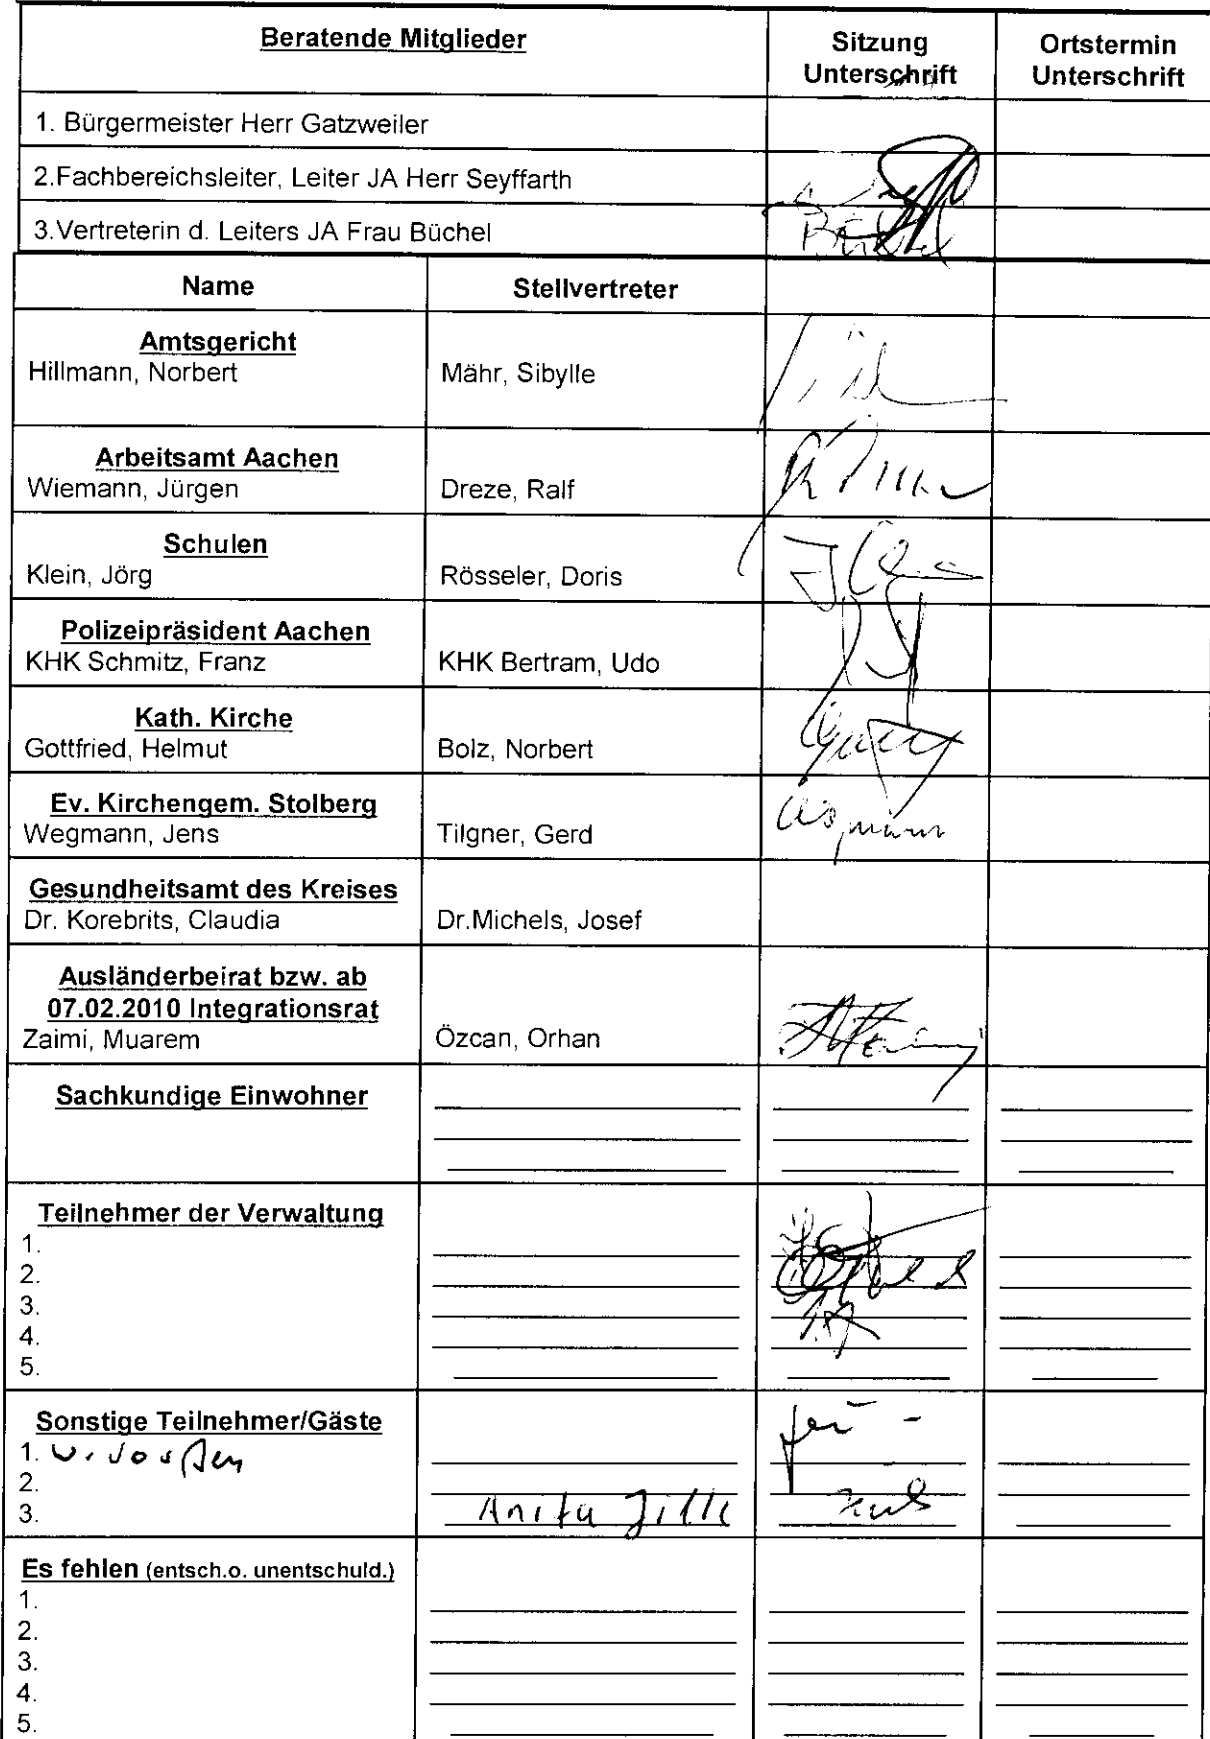 Beratende Mitglieder
Sitzung
Unterschrift
Ortstermin
Unterschrift
1. Bürgermeister Herr Gatzweiler
2.Fachbereichsleiter, Leiter JA Herr Seyffarth
3.Vertreterin d. Leiters JA Frau Büchel
Büchel
Name
Stellvertreter
Amtsgericht
Hillmann, Norbert
Mähr, Sibylle
Arbeitsamt Aachen
Wiemann, Jürgen
Dreze, Ralf
Schulen
Klein, Jörg
Rösseler, Doris
Polizeipräsident Aachen
KHK Schmitz, Franz
KHK Bertram, Udo
Kath. Kirche
Gottfried, Helmut
Bolz, Norbert
Ev. Kirchengem. Stolberg
Wegmann, Jens
Tilgner, Gerd
Wegmann
Gesundheitsamt des Kreises
Dr. Korebrits, Claudia
Dr.Michels, Josef
Ausländerbeirat bzw. ab
07.02.2010 Integrationsrat
Zaimi, Muarem
Özcan, Orhan
Sachkundige Einwohner
Teilnehmer der Verwaltung
1.
2.
3.
4.
5.
Sonstige Teilnehmer/Gäste
1.
2.
3.
Anita
Es fehlen (entsch.o. unentschuld.)
1.
2.
3.
4.
5.